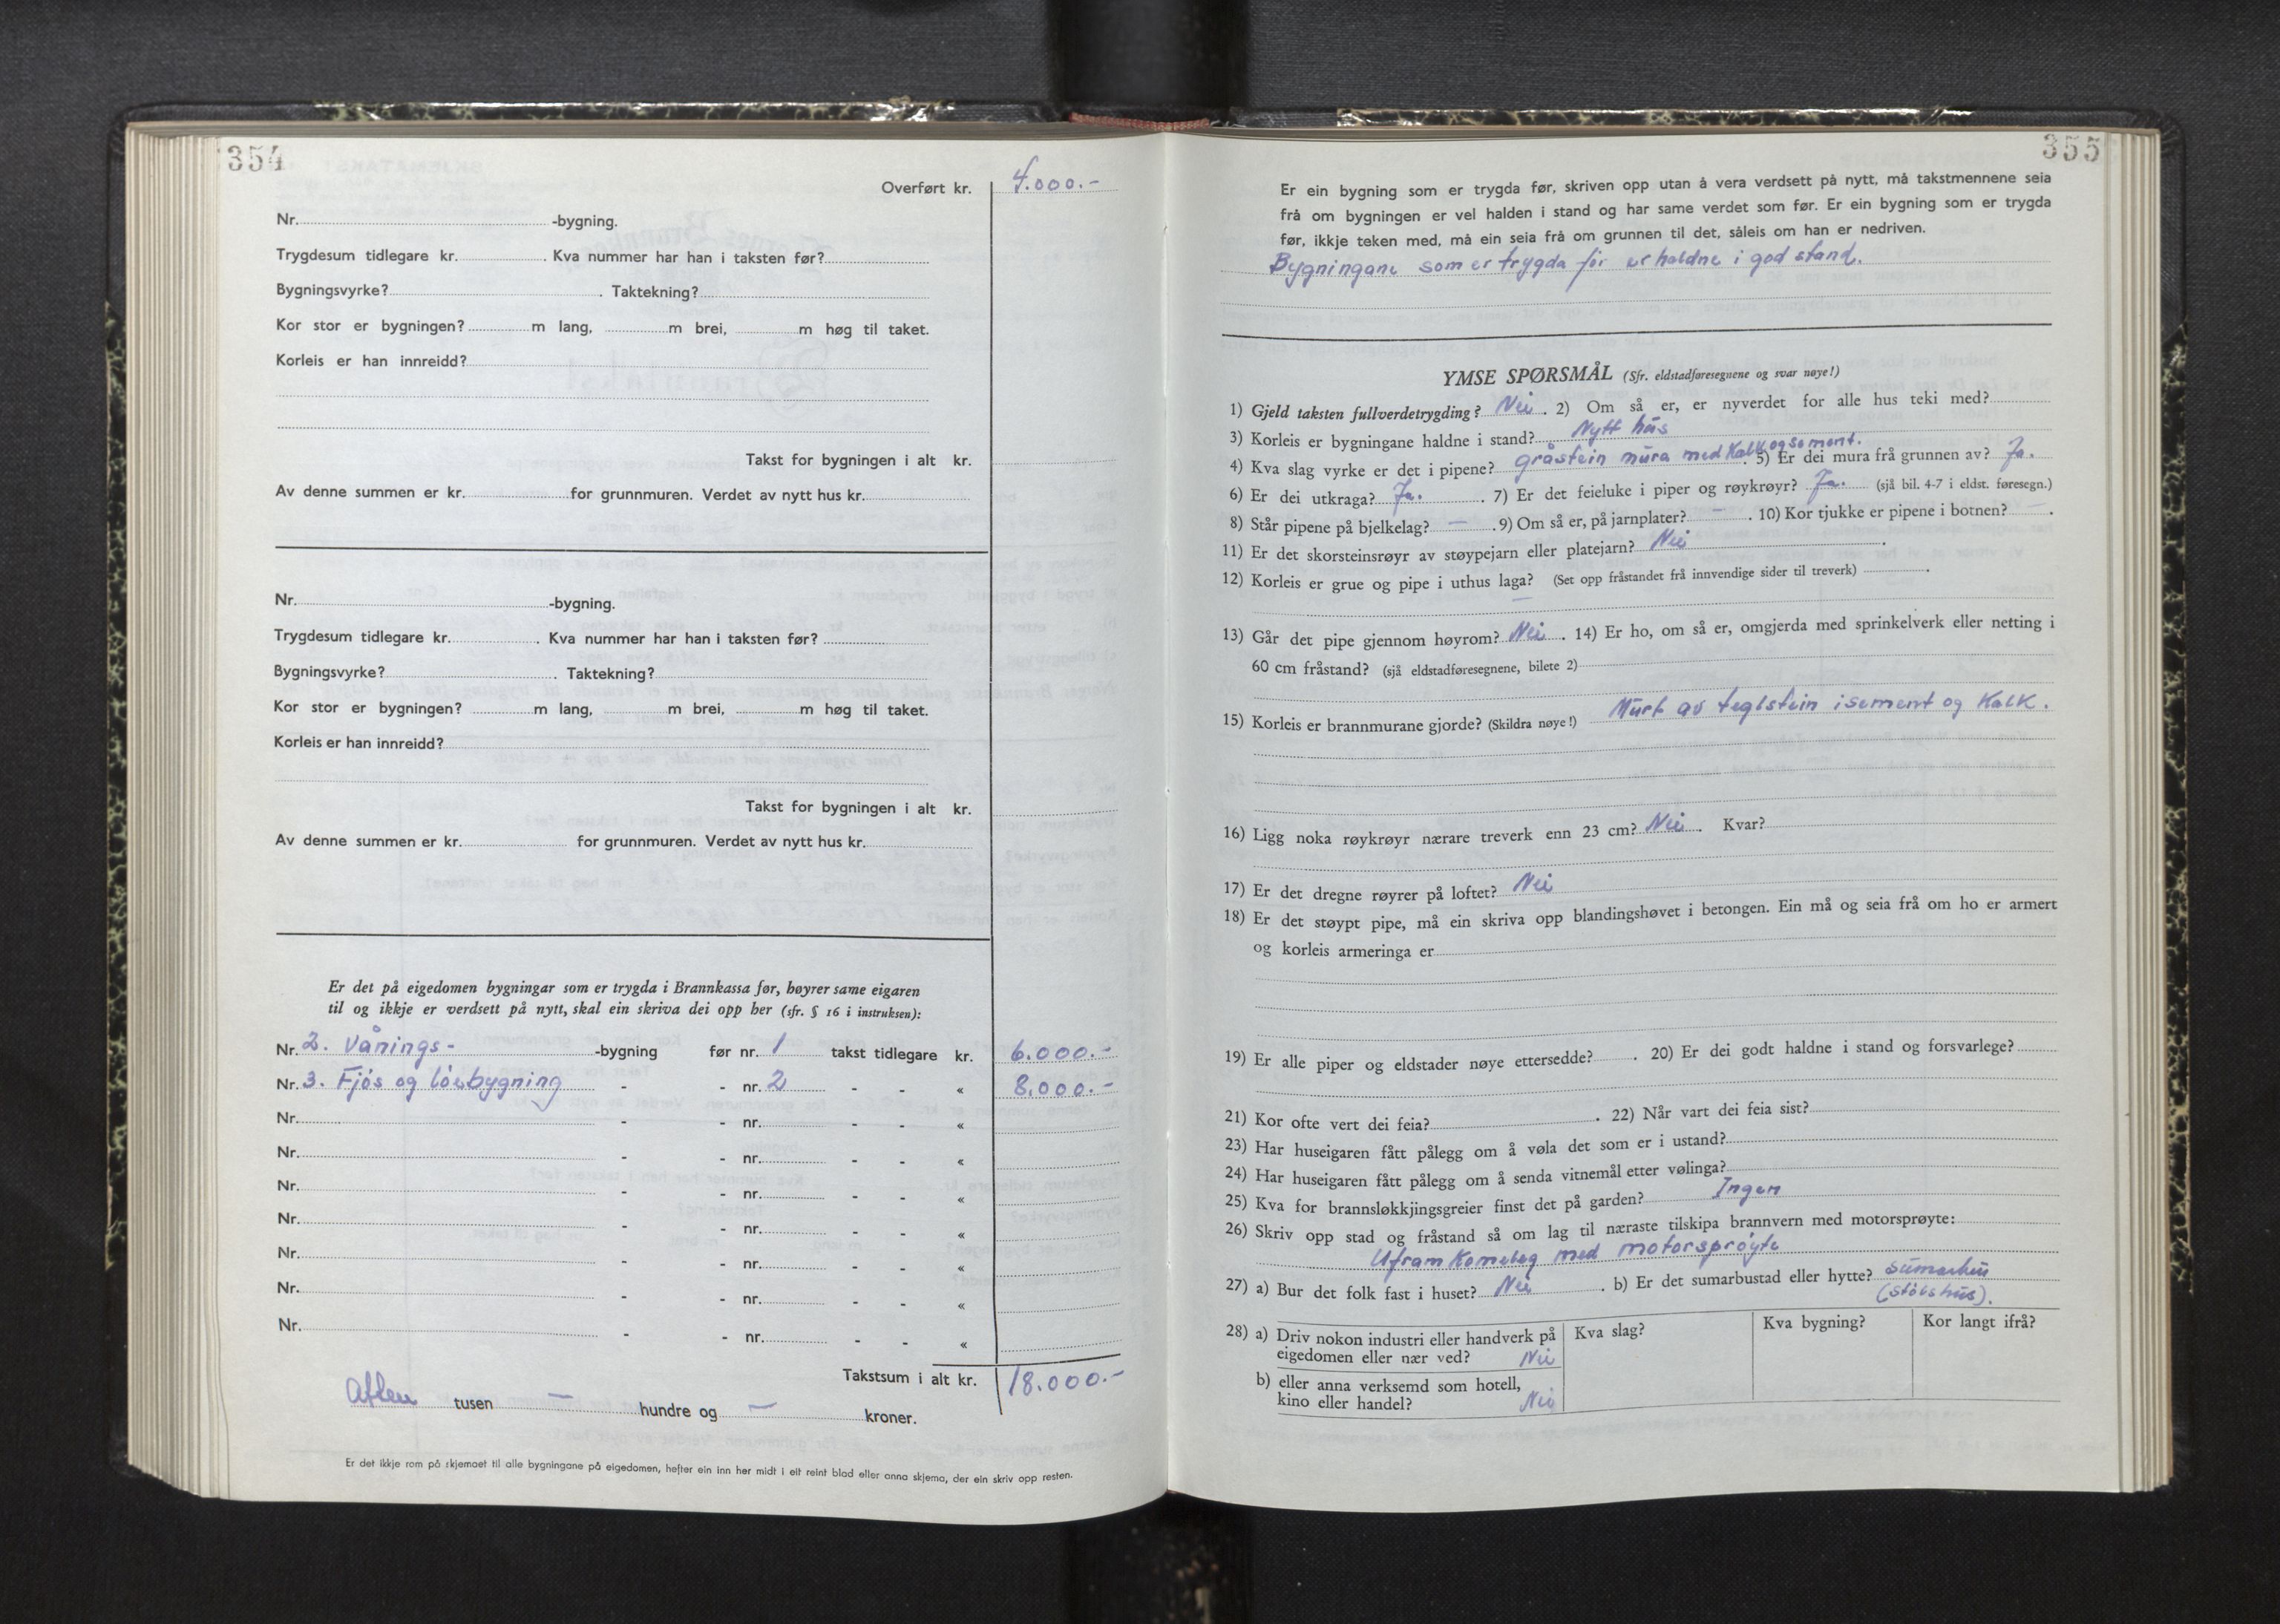 354
Overført kr. 4.000.-
Nr. -bygning.
Trygdesum tidlegare kr. . Kva nummer har han i taksten før?
Bygningsvyrke? . Taktekning?
Kor stor er bygningen? m lang, m brei, m høg til taket.
Korleis er han innreidd?
Takst for bygningen i alt kr.
Av denne summen er kr. for grunnmuren. Verdet av nytt hus kr.
Nr. -bygning.
Trygdesum tidlegare kr. . Kva nummer har han i taksten før?
Bygningsvyrke? . Taktekning?
Kor stor er bygningen? m lang, m brei, m høg til taket.
Korleis er han innreidd?
Takst for bygningen i alt kr.
Av denne summen er kr. for grunnmuren. Verdet av nytt hus kr.
Er det på eigedomen bygningar som er trygda i Brannkassa før, høyrer same eigaren
til og ikkje er verdsett på nytt, skal ein skriva dei opp her (sfr. § 16 i instruksen):
Nr. 2. Vånings- -bygning før nr. 1 takst tidlegare kr. 6.000.-
Nr. 3. Fjøs og løebygning - - nr. 2 - - « 8.000.-
Nr. - - nr. - - «
Nr. - - nr. - - «
Nr. - - nr. - - «
Nr. - - nr. - - «
Nr. - - nr. - - «
Nr. - - nr. - - «
Nr. - - nr. - - «
Takstsum i alt kr. 18.000.-
Atten tusen — hundre og — kroner.
Er det ikkje rom på skjemaet til alle bygningane på eigedomen, hefter ein inn her midt i eit reint blad eller anna skjema, der ein skriv opp resten.
355
Er ein bygning som er trygda før, skriven opp utan å vera verdsett på nytt, må takstmennene seia
frå om bygningen er vel halden i stand og har same verdet som før. Er ein bygning som er trygda
før, ikkje teken med, må ein seia frå om grunnen til det, såleis om han er nedriven.
Bygningane som er trygda før er haldne i god stand.
YMSE SPØRSMÅL (Sfr. eldstadføresegnene og svar nøye!)
1) Gjeld taksten fullverdetrygding? Nei . 2) Om så er, er nyverdet for alle hus teki med?
3) Korleis er bygningane haldne i stand? Nytt hus
4) Kva slag vyrke er det i pipene? gråstein mura med Kalk og sement. . 5) Er dei mura frå grunnen av? Ja.
6) Er dei utkraga? Ja. . 7) Er det feieluke i piper og røykrøyr? Ja. (sjå bil. 4-7 i eldst. føresegn.)
8) Står pipene på bjelkelag? — . 9) Om så er, på jarnplater? — . 10) Kor tjukke er pipene i botnen? — .
11) Er det skorsteinsrøyr av støypejarn eller platejarn? Nei .
12) Korleis er grue og pipe i uthus laga? (Set opp fråstandet frå innvendige sider til treverk) .
—
13) Går det pipe gjennom høyrom? Nei . 14) Er ho, om så er, omgjerda med sprinkelverk eller netting i
60 cm fråstand? (sjå eldstadføresegnene, bilete 2)
15) Korleis er brannmurane gjorde? (Skildra nøye!) Murt av teglstein i sement og Kalk.
16) Ligg noka røykrøyr nærare treverk enn 23 cm? Nei . Kvar?
17) Er det dregne røyrer på loftet? Nei
18) Er det støypt pipe, må ein skriva opp blandingshøvet i betongen. Ein må og seia frå om ho er armert
og korleis armeringa er
19) Er alle piper og eldstader nøye ettersedde? . 20) Er dei godt haldne i stand og forsvarlege?
21) Kor ofte vert dei feia? . 22) Når vart dei feia sist?
23) Har huseigaren fått pålegg om å vøla det som er i ustand?
24) Har huseigaren fått pålegg om å senda vitnemål etter vølinga?
25) Kva for brannsløkkjingsgreier finst det på garden? Ingen
26) Skriv opp stad og fråstand så om lag til næraste tilskipa brannvern med motorsprøyte:
Uframkomeleg med motorsprøyte
27) a) Bur det folk fast i huset? Nei . b) Er det sumarbustad eller hytte? sumarhus
(stølshus).
28) a) Driv nokon industri eller handverk på
eigedomen eller nær ved? Nei
Kva slag? Kva bygning? Kor langt ifrå?
b) eller anna verksemd som hotell,
kino eller handel? Nei